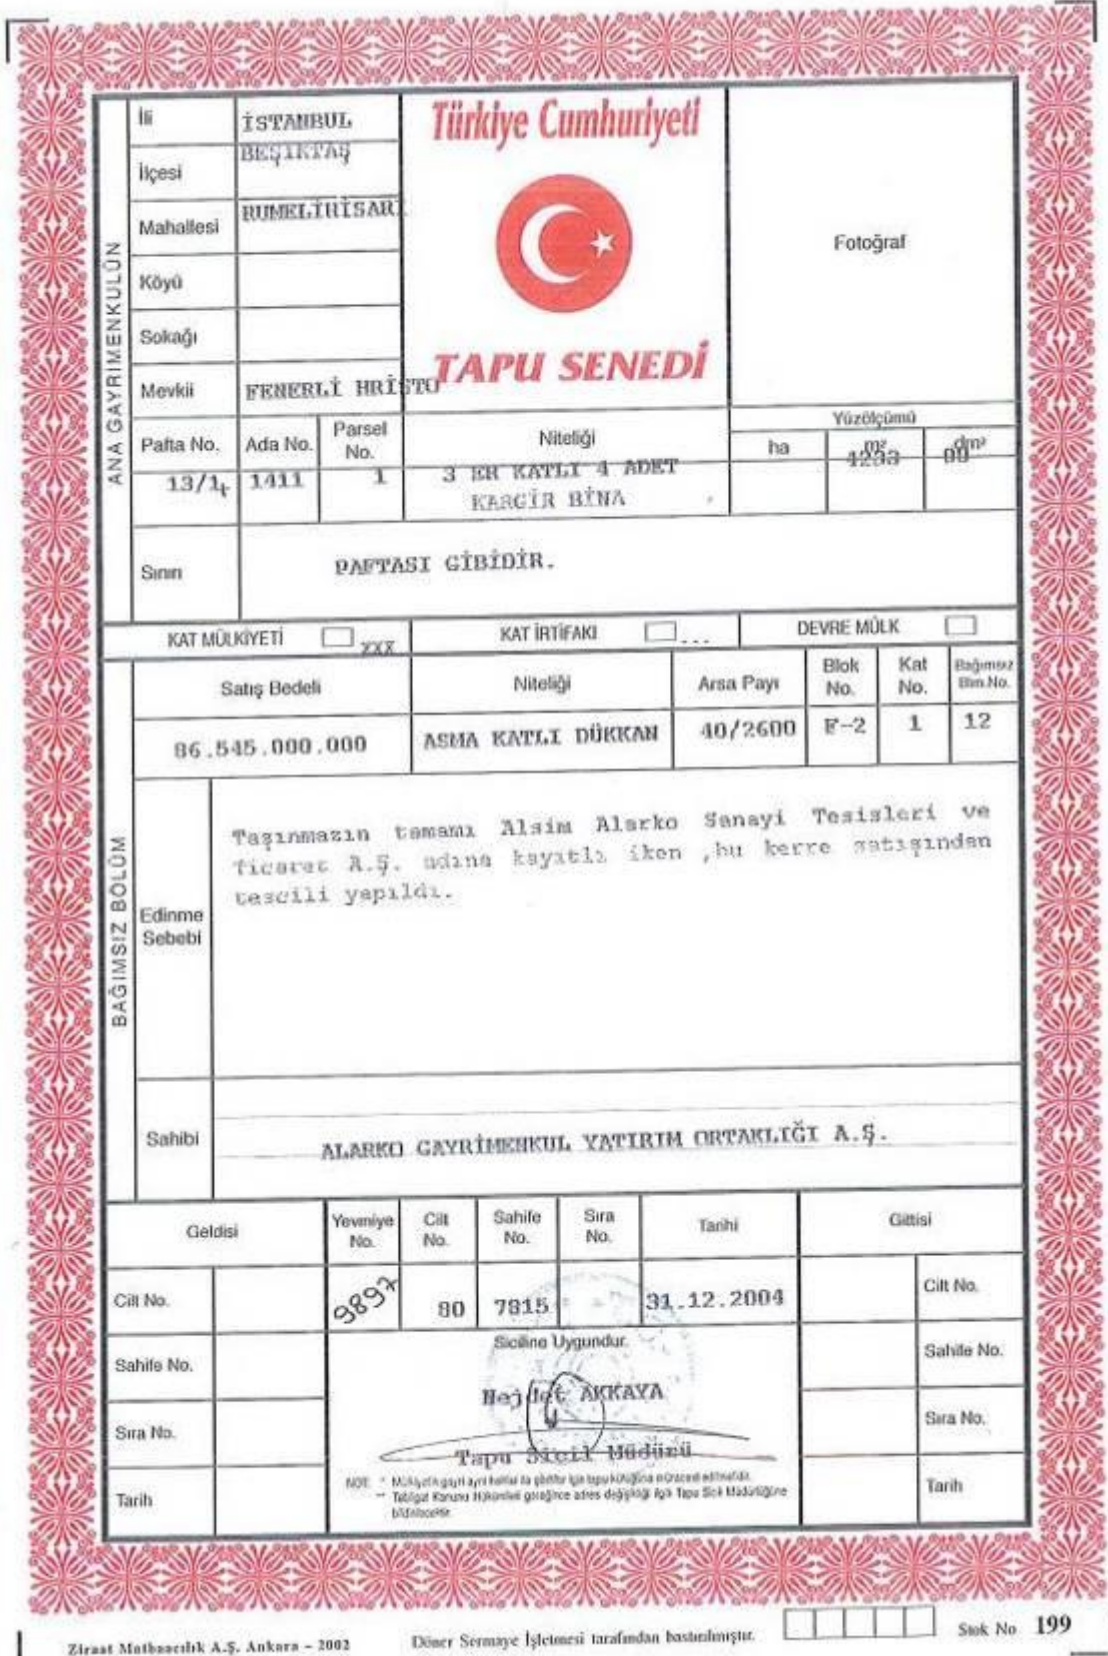 İli
İSTANBUL
Türkiye Cumhuriyeti
İlçesi
BEŞİKTAŞ
Mahallesi
RUMELİHİSARI
Fotoğraf
Köyü
Sokağı
TAPU SENEDİ
Mevkii
FENERLİ HRİSTO
ANA GAYRIMENKULÜN
Pafta No.
Ada No.
Parsel No.
Niteliği
Yüzölçümü
ha
m²
dm²
13/1
1411
1
3 ER KATLI 4 ADET
KARGİR BİNA
4233
Sınırı
PAFTASI GİBİDİR.
KAT MÜLKİYETİ
XXX
KAT İRTİFAKI
...
DEVRE MÜLK
Satış Bedeli
Niteliği
Arsa Payı
Blok No.
Kat No.
Bağımsız Blm.No.
86.545.000.000
ASMA KATLI DÜKKAN
40/2600
F-2
1
12
BAĞIMSIZ BÖLÜM
Edinme Sebebi
Taşınmazın tamamı Alsim Alarko Sanayi Tesisleri ve
Ticaret A.Ş. adına kayatlı iken ,bu kerre satışından
tescili yapıldı.
Sahibi
ALARKO GAYRİMENKUL YATIRIM ORTAKLIĞI A.Ş.
Geldisi
Yevmiye No.
Cilt No.
Sahife No.
Sıra No.
Tarihi
Gittisi
Cilt No.
9897
80
7815
31.12.2004
Cilt No.
Siciline Uygundur.
Sahife No.
Sahife No.
Nejdet AKKAYA
Sıra No.
Sıra No.
Tapu Sicil Müdürü
NOT: * Mülkiyetin gayri ayni haklar ile şerhler için tapu kütüğüne müracaat edilmelidir.
** Tebligat Kanunu Hükümleri gereğince adres değişikliği ilgili Tapu Sicil Müdürlüğüne
bildirilecektir.
Tarih
Tarih
Ziraat Matbaacılık A.Ş. Ankara - 2002
Döner Sermaye İşletmesi tarafından bastırılmıştır.
Stok No 199